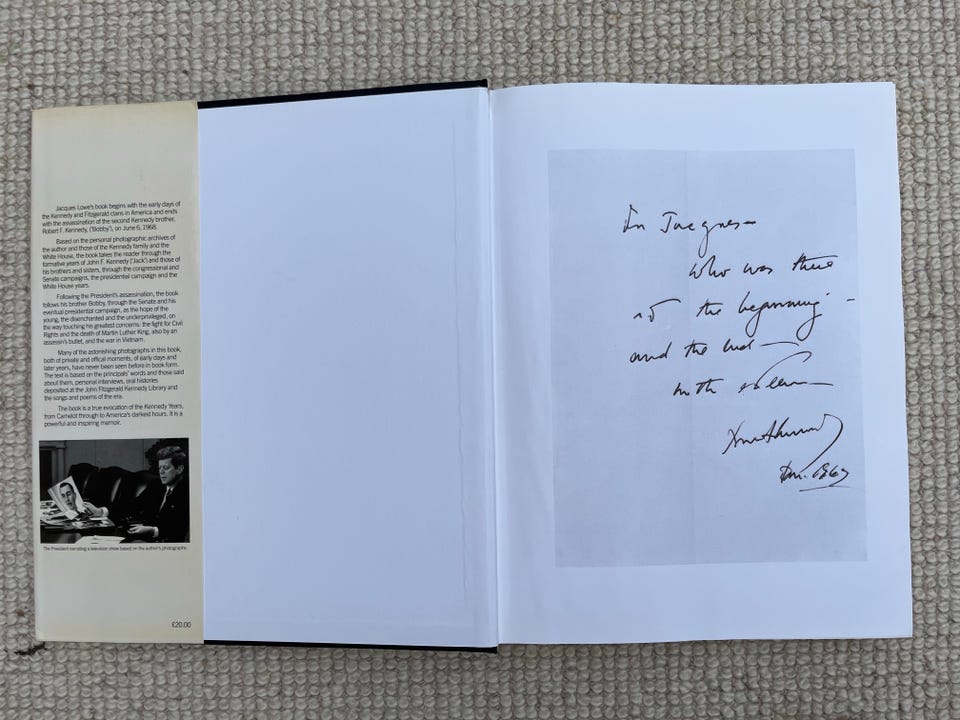 Jacques Lowe's book begins with the early days of
the Kennedy and Fitzgerald clans in America and ends
with the assassination of the second Kennedy brother,
Robert F. Kennedy, ('Bobby'), on June 6, 1968.
Based on the personal photographic archives of
the author and those of the Kennedy family and the
White House, the book takes the reader through the
formative years of John F. Kennedy ('Jack') and those of
his brothers and sisters, through the congressional and
Senate campaigns, the presidential campaign and the
White House years.
Following the President's assassination, the book
follows his brother Bobby, through the Senate and his
eventual presidential campaign, as the hope of the
young, the disenchanted and the underprivileged, on
the way touching his greatest concerns: the fight for Civil
Rights and the death of Martin Luther King, also by an
assassin's bullet, and the war in Vietnam.
Many of the astonishing photographs in this book,
both of private and offical moments, of early days and
later years, have never been seen before in book form.
The text is based on the principals' words and those said
about them, personal interviews, oral histories
deposited at the John Fitzgerald Kennedy Library and
the songs and poems of the era.
The book is a true evocation of the Kennedy Years,
from Camelot through to America's darkest hours. It is a
powerful and inspiring memoir.
The President narrating a television show based on the author's photographs.
£20.00
For Jacques—
who was there
at the beginning —
and the end —
with esteem —